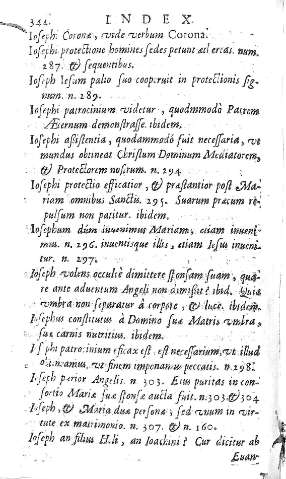 342. INDEX.
Ioseph: Coronæ, vide verbum Corona.
Iosephi protectione homines sedes petunt æthereas. num.
287. & sequentibus.
Ioseph Iesum palio suo cooperuit in protectionis sig-
num. n. 289.
Iosephi patrocinium videtur, quodmmodò Patrem
Æternum demonstrasse. ibidem.
Iosephi assistentia, quodammodò fuit necessaria, vt
mundus obtineat Christum Dominum Mediatorem,
& Protectorem nostrum. n. 294
Iosephi protectio efficatior, & præstantior post Ma-
riam omnibus Sanctis. 295. Suarum præcum re-
pulsum non patitur. ibidem.
Iosephum dum invenimus Mariam, etiam inveni-
mus. n. 296. inventisque illis, etiam Iesus inveni-
tur. n. 297.
Ioseph volens occultè dimittere sponsam suam, qua-
re ante aduentum Angeli non dimisit? ibid. Quia
vmbra non separatur à corpore, & luce. ibidem.
Iosephus constitutus à Domino suæ Matris vmbra,
suæ carnis nutritius. ibidem.
I sephi patrocinium efficax est, est necessarium, vt illud
vt finem imponamus peccatis. n. 298.
Ioseph perior Angelis. n. 303. Eius puritas in con-
sortio Mariæ suæ sponsæ aucta fuit. n. 303. & 304
Ioseph, & Maria duæ personæ; sed vnum in vir-
tute ex matrimonio. n. 307. & n. 160.
Ioseph an filius Heli, an Ioachini? Cur dicitur ab
Euan-